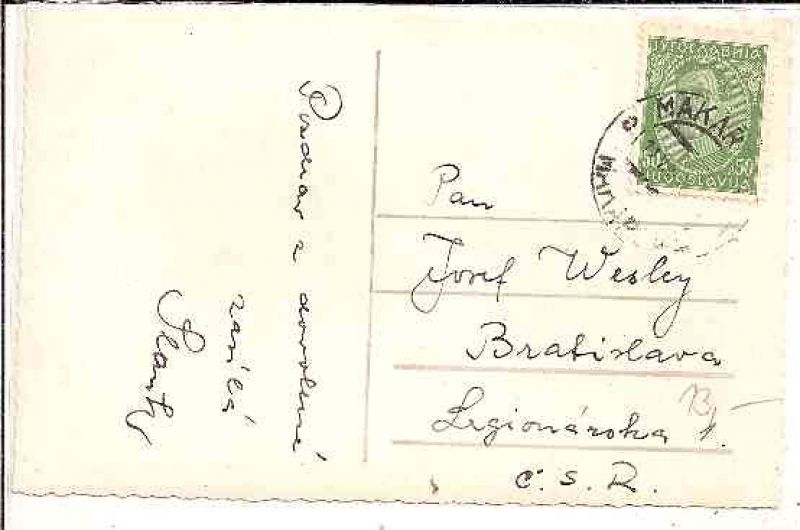 Pozdrav z dovolené
zasílá
Југославија
50 50
Jugoslavija
MAKAR
Pan
Josef Wesley
Bratislava
Legionárska 1.
Č.S.R.
13